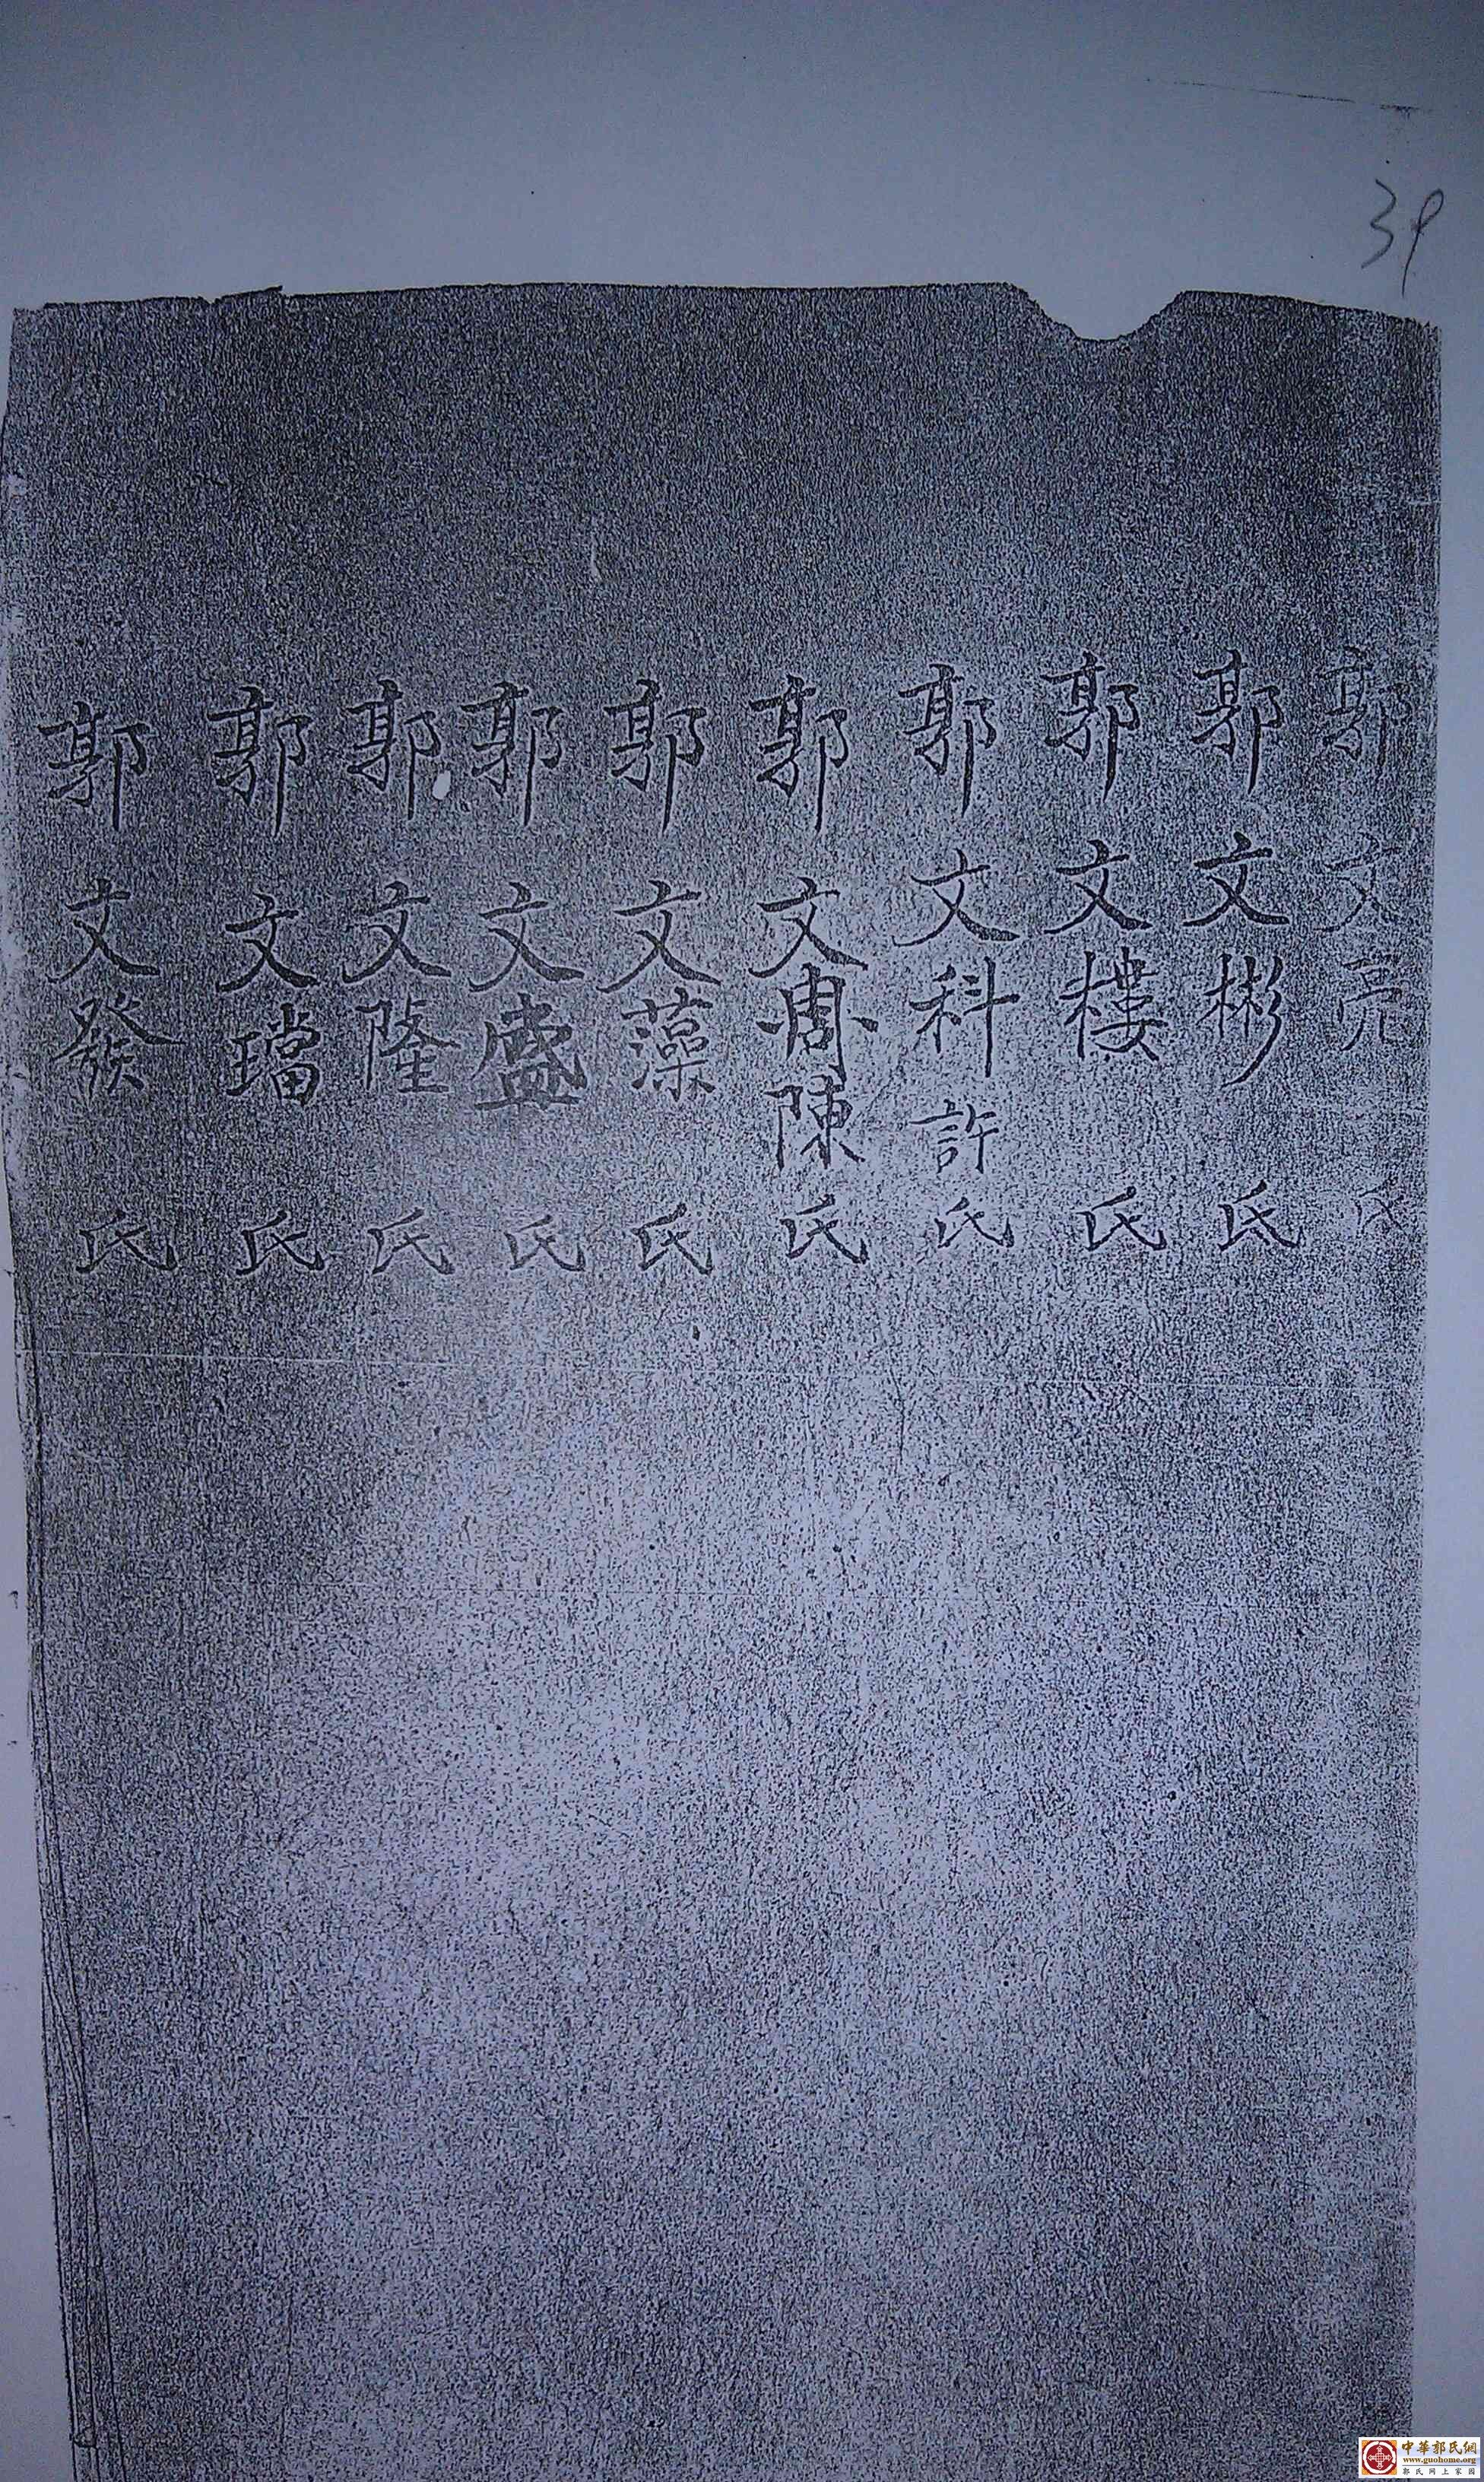 39
郭文亮 氏
郭文彬 氏
郭文樓 氏
郭文科 許氏
郭文周 陳氏
郭文藻 氏
郭文盛 氏
郭文隆 氏
郭文璫 氏
郭文發 氏
中華郭氏網
www.guohome.org
郭氏网上家园